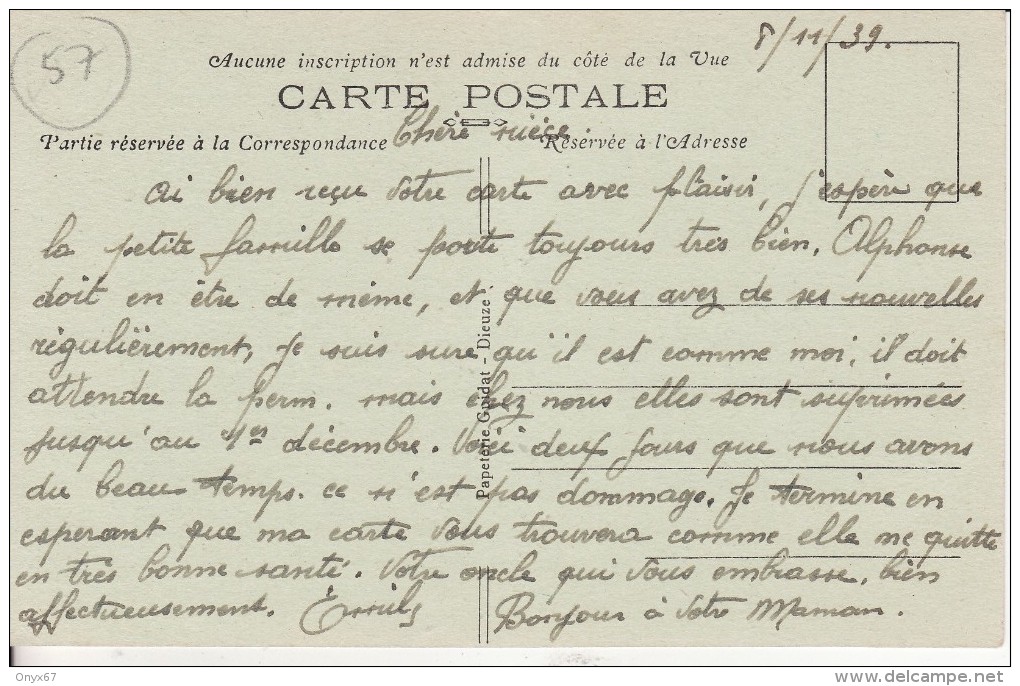 57
8/11/39.
Aucune inscription n'est admise du côté de la Vue
CARTE POSTALE
Partie réservée à la Correspondance
Réservée à l'Adresse
Chère nièce.
ai bien reçu votre carte avec plaisir, j'espère que
la petite famille se porte toujours très bien. Alphonse
doit en être de même, et que vous avez de ses nouvelles
régulièrement, je suis sure qu'il est comme moi, il doit
attendre la perm. mais chez nous elles sont suprimées
jusqu'au 1er décembre. Voici deux jours que nous avons
du beau temps. ce n'est pas dommage. Je termine en
esperant que ma carte vous trouvera comme elle me quitte
en très bonne santé. Votre oncle qui vous embrasse, bien
affectueusement. Émile
Bonjour à votre Maman.
Papeterie Guidat - Dieuze
Onyx67
delcampe.net